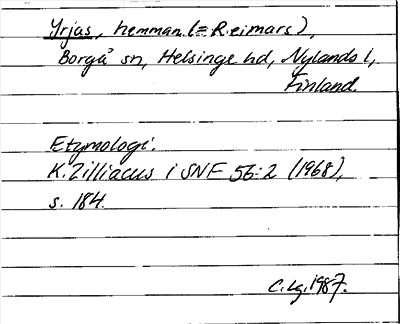 Yrjas, hemman (= Reimars),
Borgå sn, Helsinge hd, Nylands l,
Finland.
Etymologi:
K. Zilliacus i SNF 56:2 (1968),
s. 184.
C. Lg. 1987.